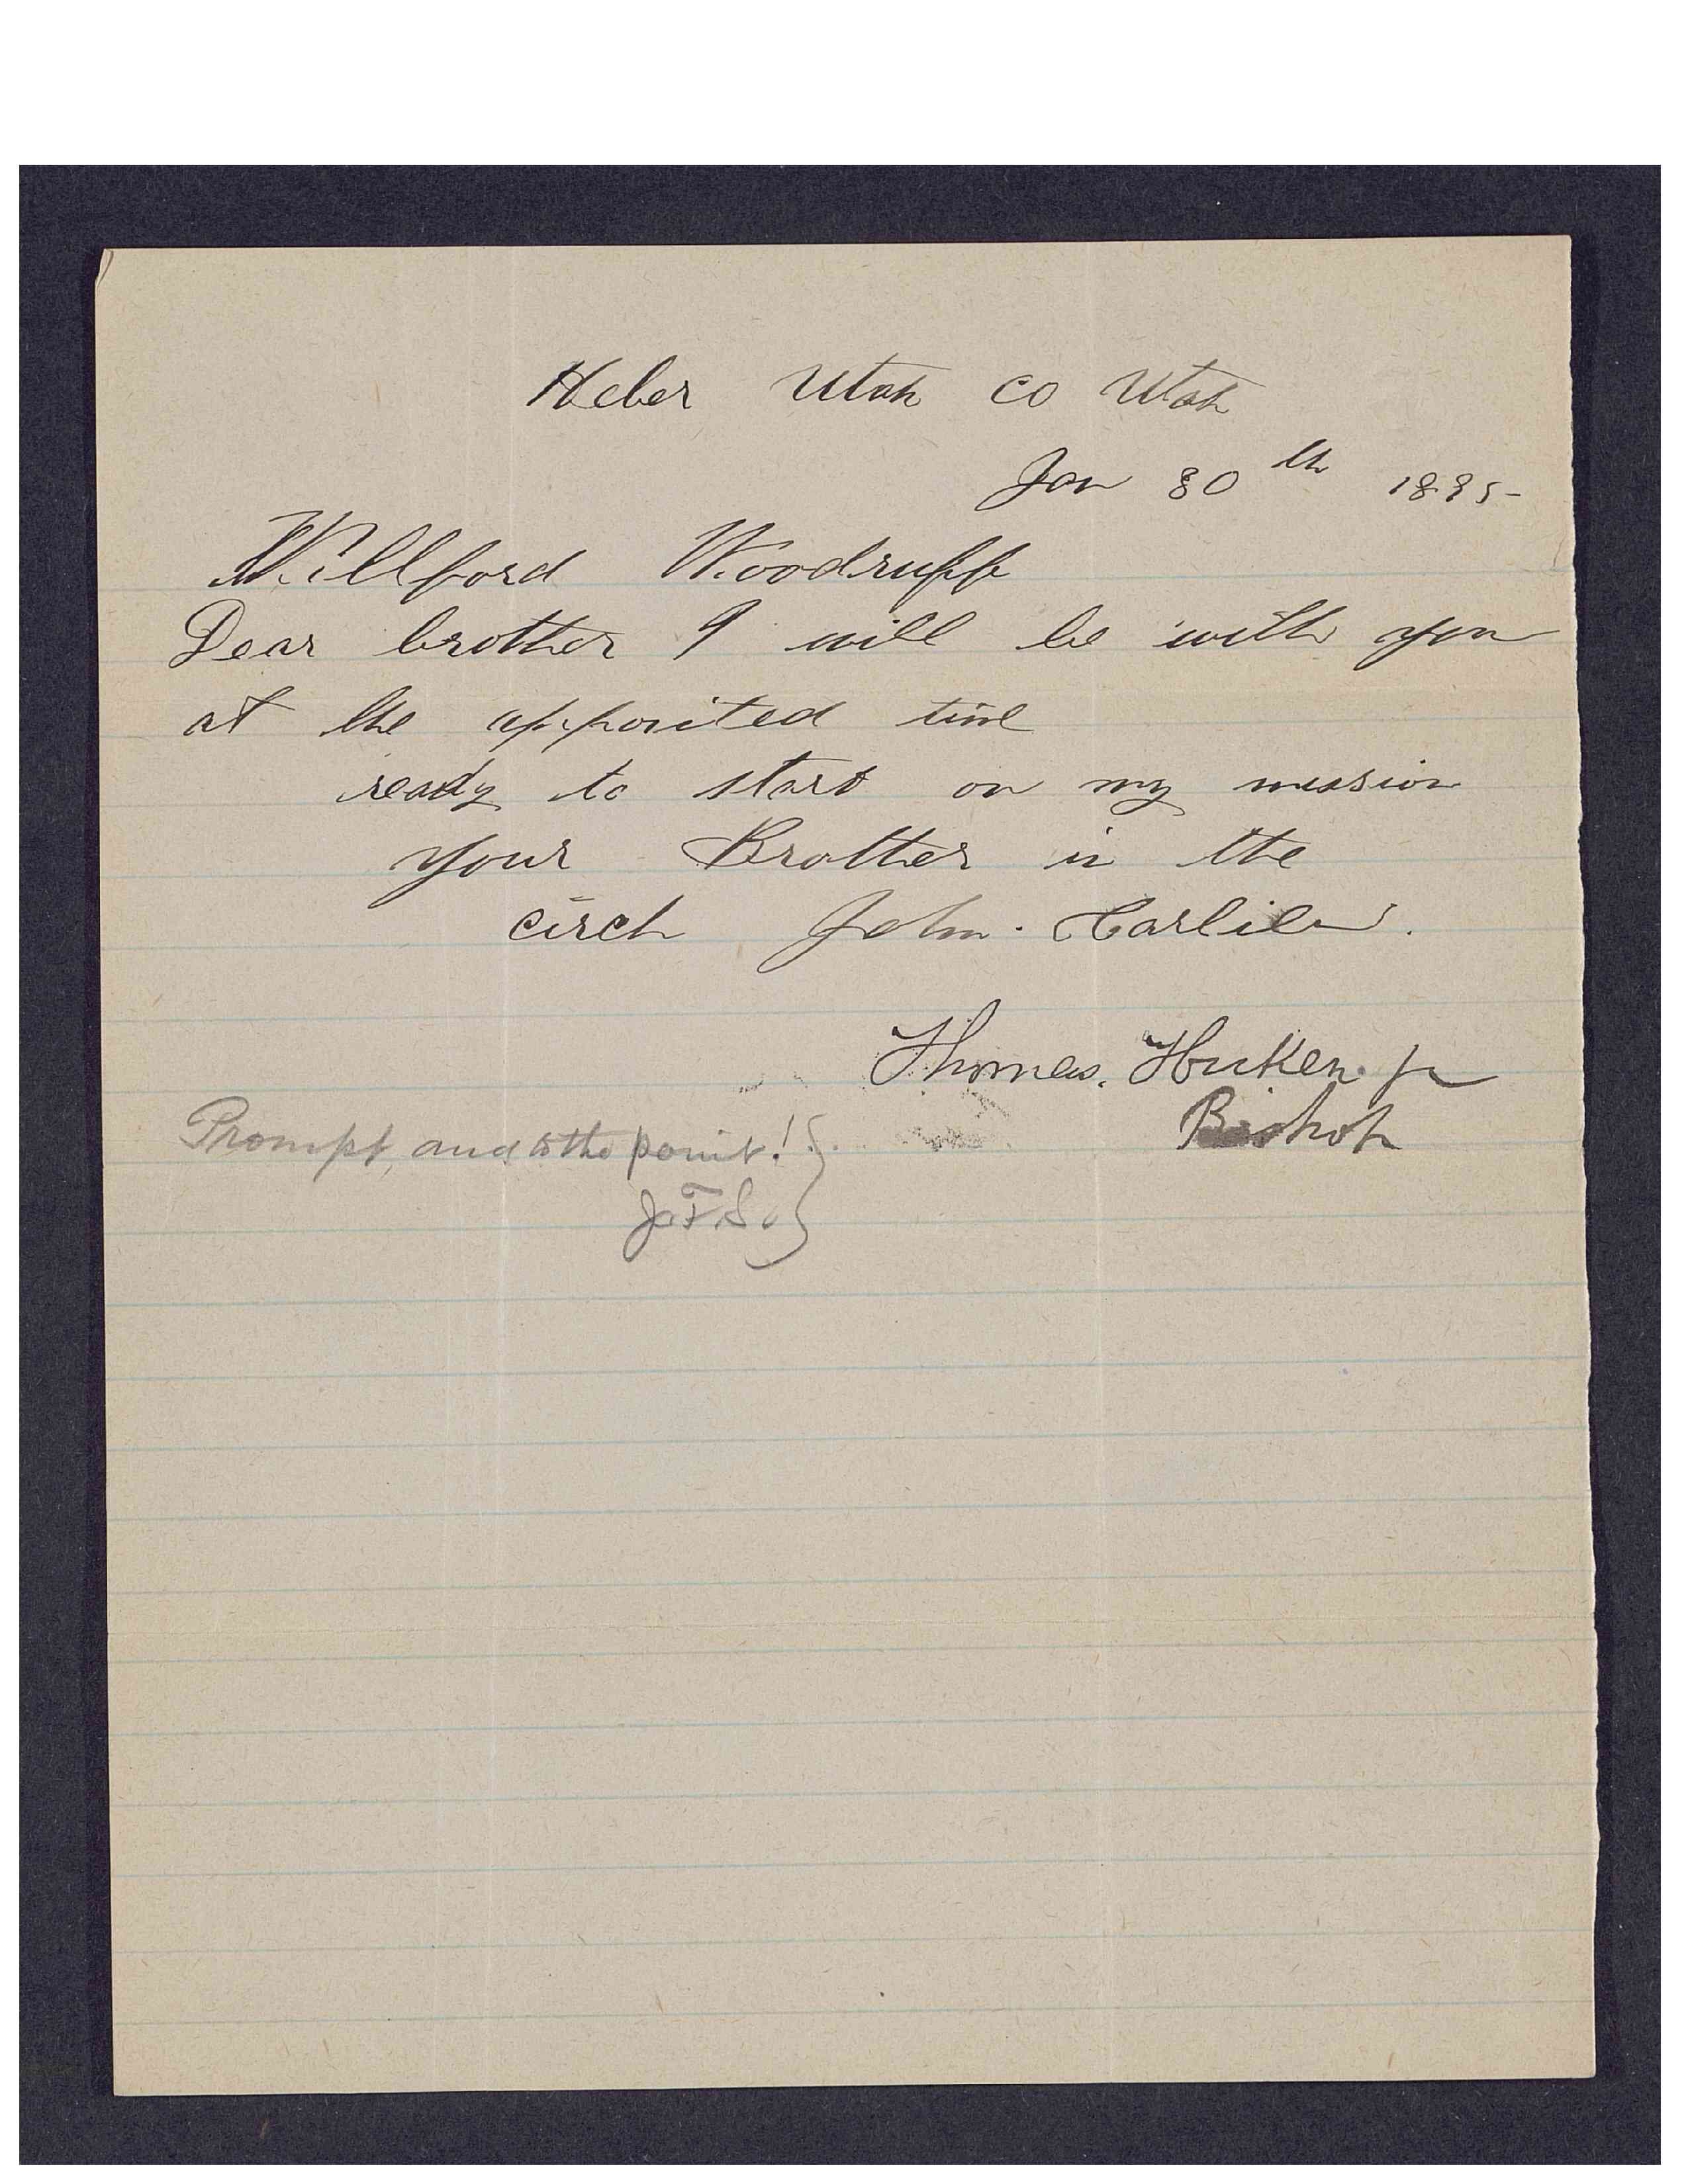 Heber Utah co Utah
Jan 30th 1895-
Willford Woodruff
Dear brother I will be with you
at the appoited time
ready to start on my mission
your Brother in the
circh John. Carlile.
Thomas. Hicken. Jr
Bishop
Prompt, and to the point!
J.F.S.